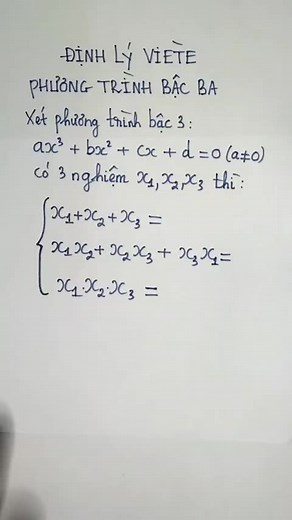 ĐỊNH LÝ VIETE
PHƯƠNG TRÌNH BẬC BA
Xét phương trình bậc 3:
ax³ + bx² + cx + d = 0 (a≠0)
có 3 nghiệm x₁, x₂, x₃ thì:
x₁+x₂+x₃ =
x₁x₂+ x₂x₃ + x₃x₁=
x₁.x₂.x₃ =